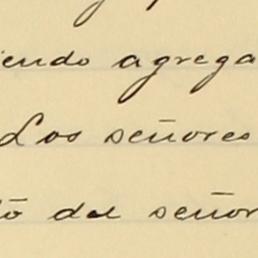 iendo agrega
Los señores
ó del señor